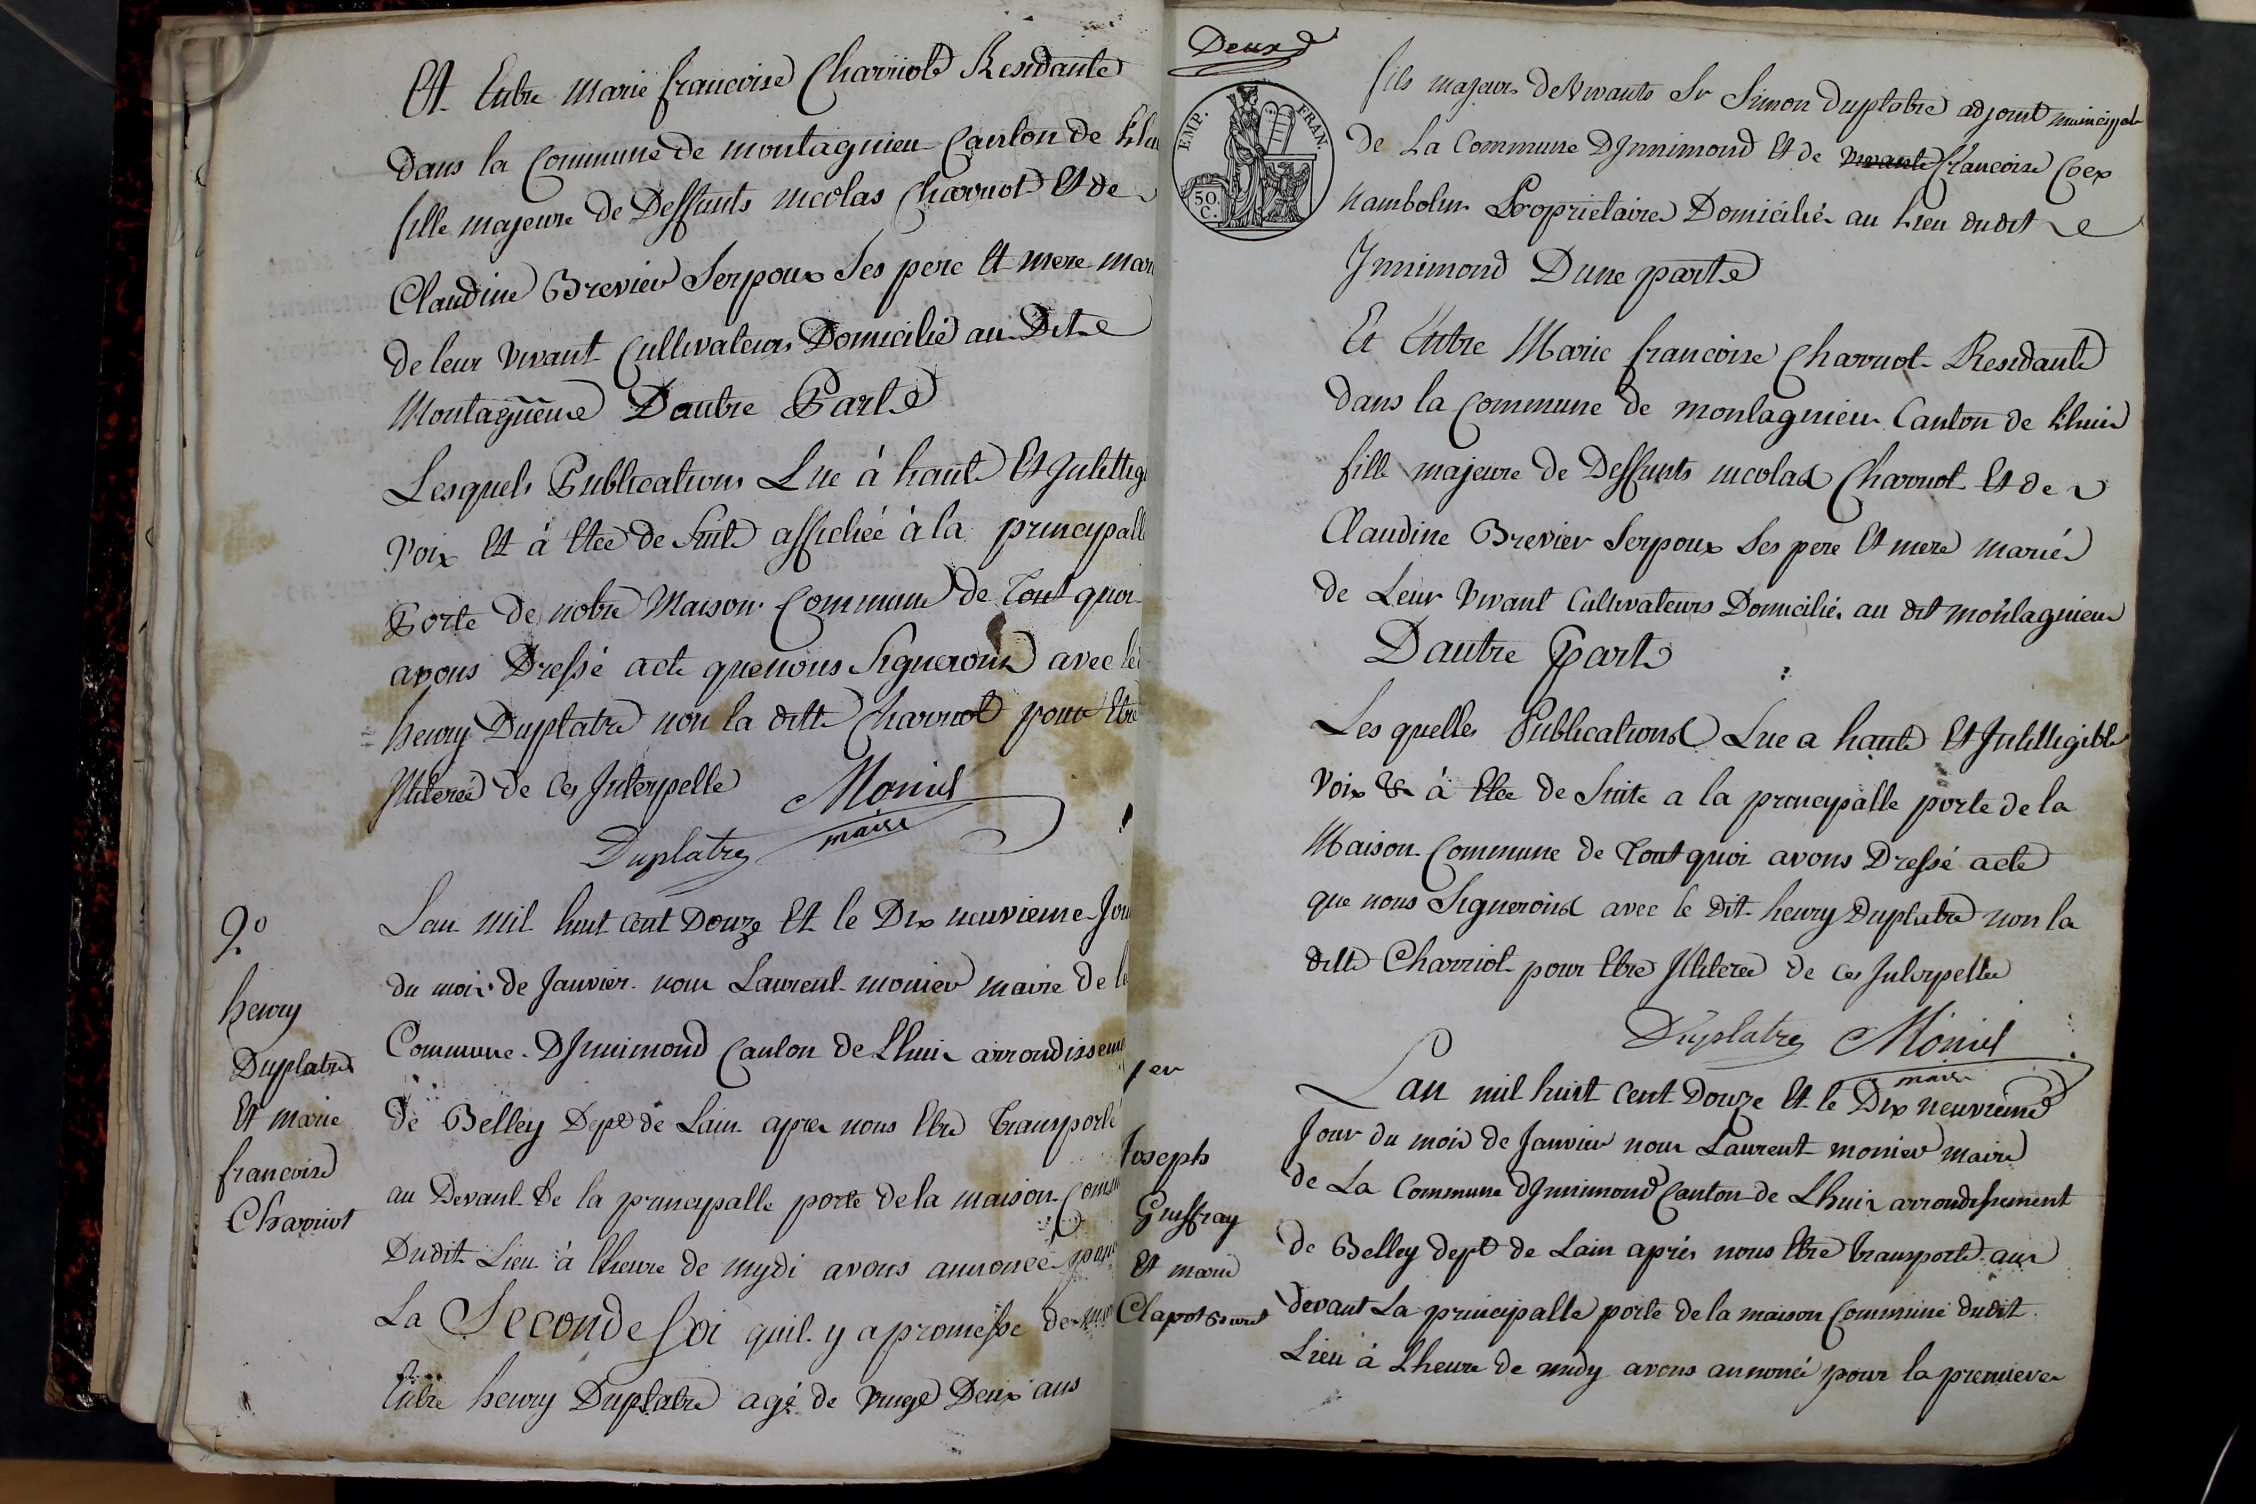 Et Entre marie francoise Charriot Residante
dans la Commune de montagnieu Canton de Lhui
fille majeure de Deffunts nicolas Charriot Et de
Claudine Brevier Serpoux Ses pere Et mere mari
de leur vivant Cultivateurs Domicilié au Dit
Montagneue Dautre Part
Lesquels Publications Lue à haute Et Intellig
Voix Et à Etee de Suite affichéé à la principalle
Porte de notre Maison Commune de Tout quoi
avons Dressé acte quenous Signerons avec le
henry Duplatre non la ditte Charriot pour Etre
Illiteréé de Ces Interpelle Monier
Duplatre maire
2.o
henry
Duplatre
Et marie
francoise
Charriot
Lan mil huit cent Douze Et le Dix neuvieme Jou
du mois de Janvier nous Laurent monier maire de la
Commune DInnimond Canton de Lhuis arrondisseme
de Belley Dept de Lain apres nous Etre Transporté
au Devant de la principalle porte de la maison Comm
Dudit Lieu à lheure de mydi avons annoncé pour
La Seconde foi quil y a promesse de
Entre henry Duplatre agé de vingt Deux ans
Deux
EMP. FRAN.
50 C.
fils majeur de Vivants Sr Simon Duplatre adjoint municipal
de La Commune DInnimond Et de vivante francoise Coex
nambolin Proprietaires Domicilié au Lieu dudit
Innimond Dune part
Et Entre Marie francoise Charriot Residante
dans la Commune de montagnieu Canton de Lhuis
fille majeure de Deffunts nicolas Charriot Et de
Claudine Brevier Serpoux Ses pere Et mere mariés
de Leur Vivant Cultivateurs Domiciliés au dit montagnieu
Dautre Part
Les quelles Publications Lue a haute Et Intelligible
Voix & à Etee de Suite a la principalle porte de la
Maison Commune de Tout quoi avons Dressé acte
que nous Signerons avec le Dit henry Duplatre non la
ditte Charriot pour Etre Illiterée de Ces Interpellee
Duplatre Monier
maire
1er
Joseph
Guffray
Et marie
Clapot
Lan mil huit Cent Douze Et le Dix neuvieme
Jour du mois de Janvier nous Laurent monier maire
de La Commune dInnimond Canton de Lhuis arrondissement
de Belley dept de Lain aprés nous Etre transporté au
devant La principalle porte de la maison Commune dudit
Lieu à Lheure de midy avons annoncé pour la premiere